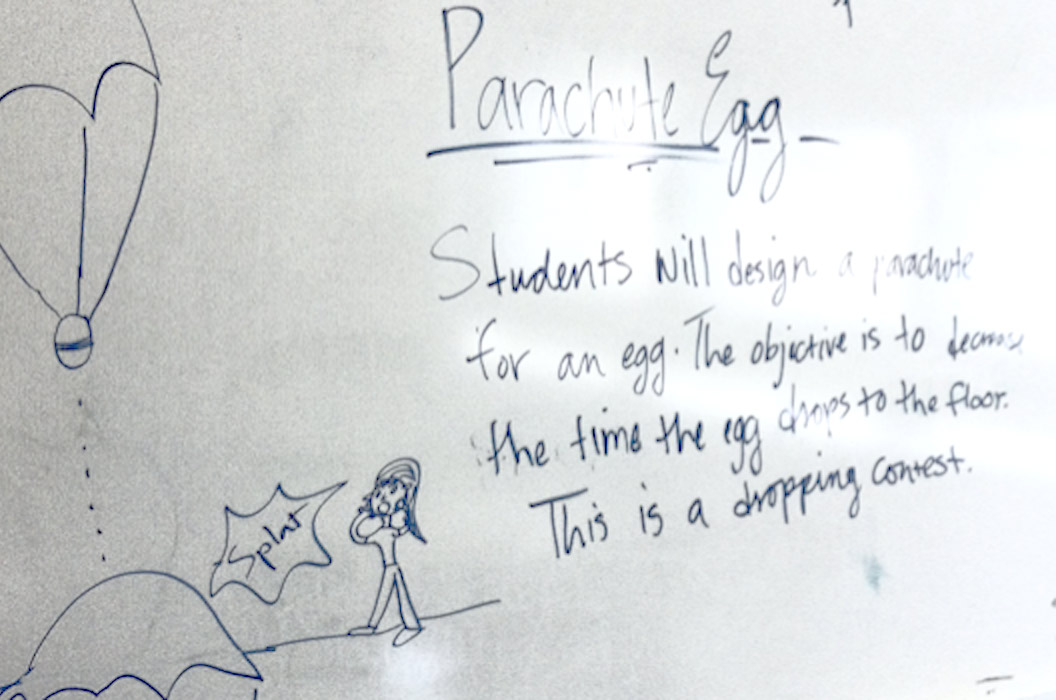 Parachute Egg
Students will design a parachute
for an egg. The objective is to decrease
the time the egg drops to the floor.
This is a dropping contest.
Splat